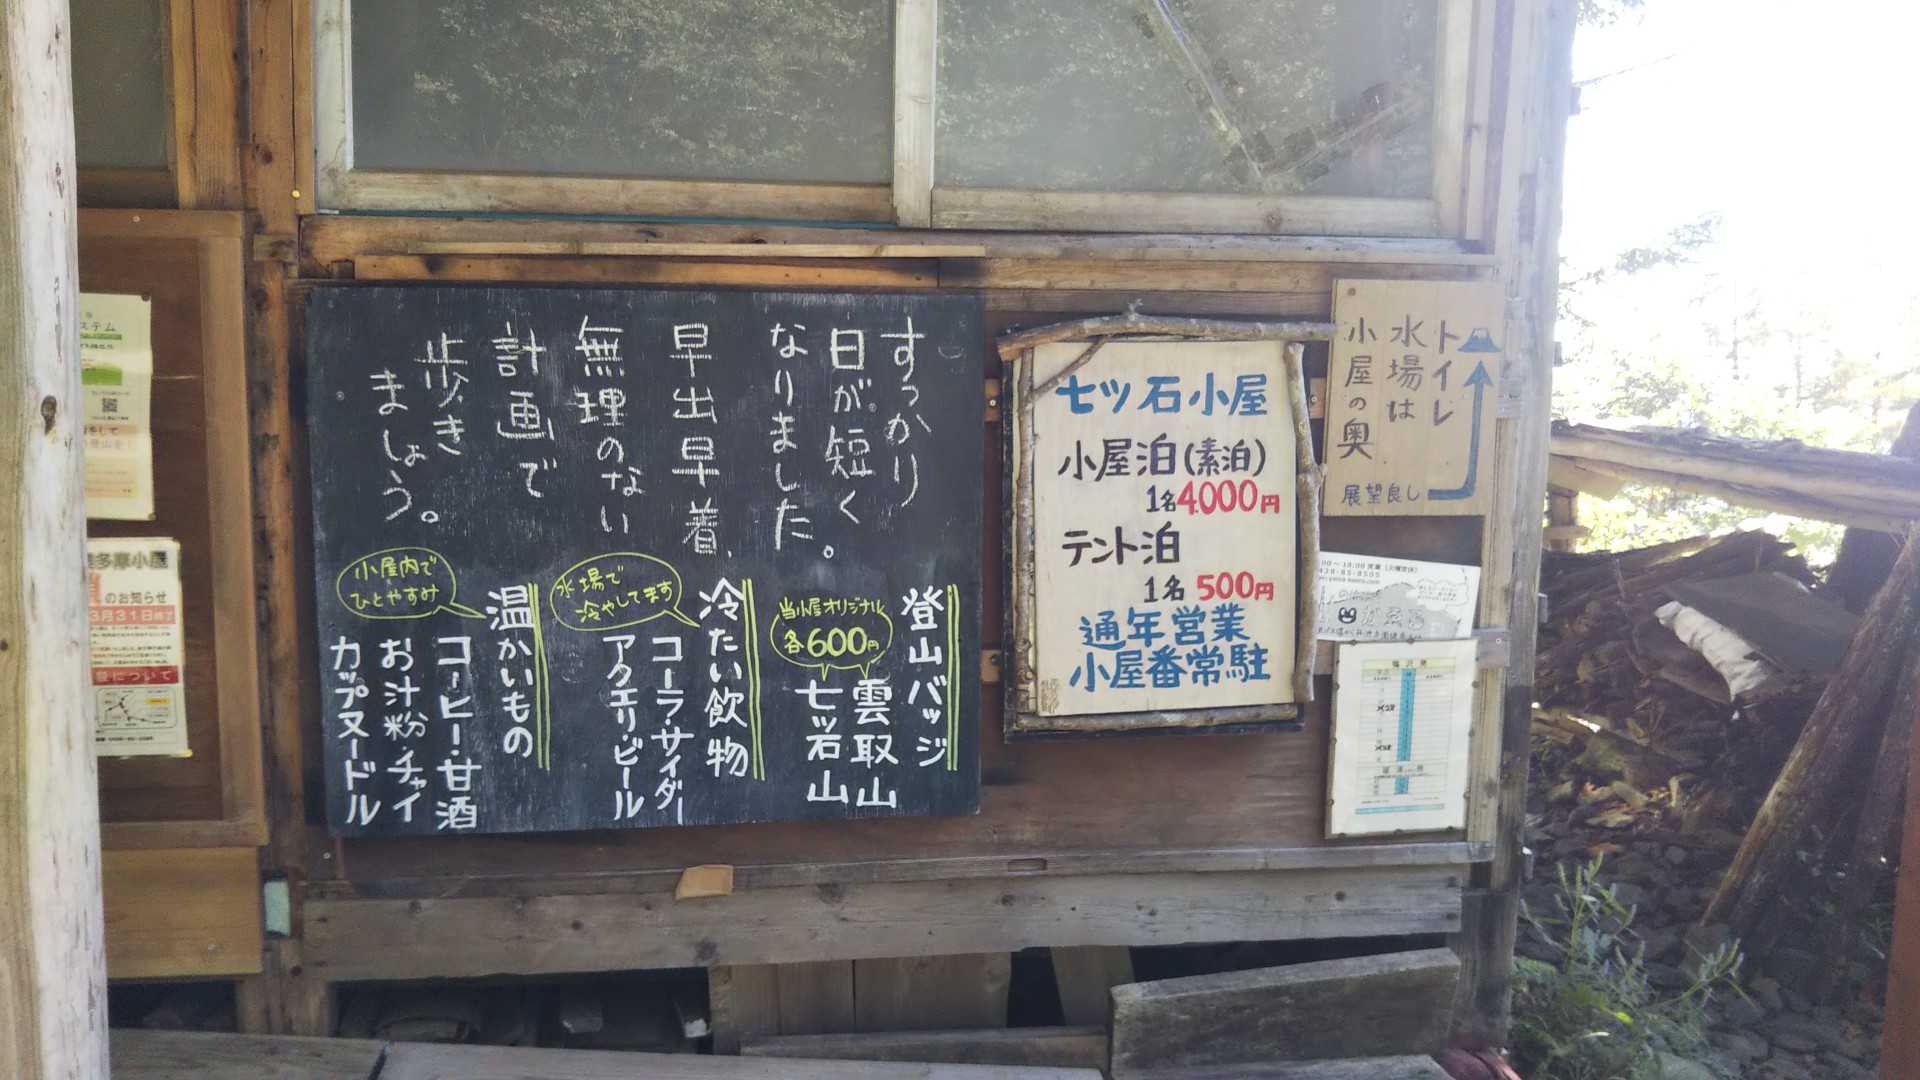 すっかり
日が短く
なりました。
早出早着、
無理のない
計画で
歩き
ましょう。
登山バッジ
当小屋オリジナル
各600円
雲取山
七ツ石山
冷たい飲物
水場で
冷やしてます
コーラ・サイダー
アクエリ・ビール
温かいもの
小屋内で
ひとやすみ
コーヒー・甘酒
お汁粉・チャイ
カップヌードル
七ツ石小屋
小屋泊(素泊)
1名4000円
テント泊
1名 500円
通年営業
小屋番常駐
トイレ
水場は
小屋の奥
展望良し
ステム
多摩小屋
のお知らせ
3月31日
について